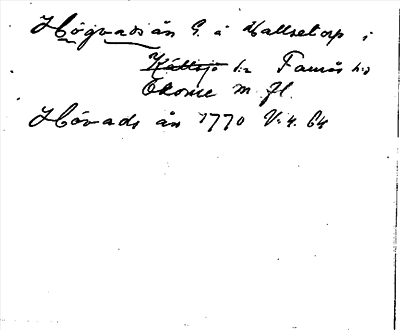 Högvadsån G. å Hallsetorp i
Källsjö s:n Fauräs h:d
Ekome m. fl.
Hövads ån 1770 V: 4. 64